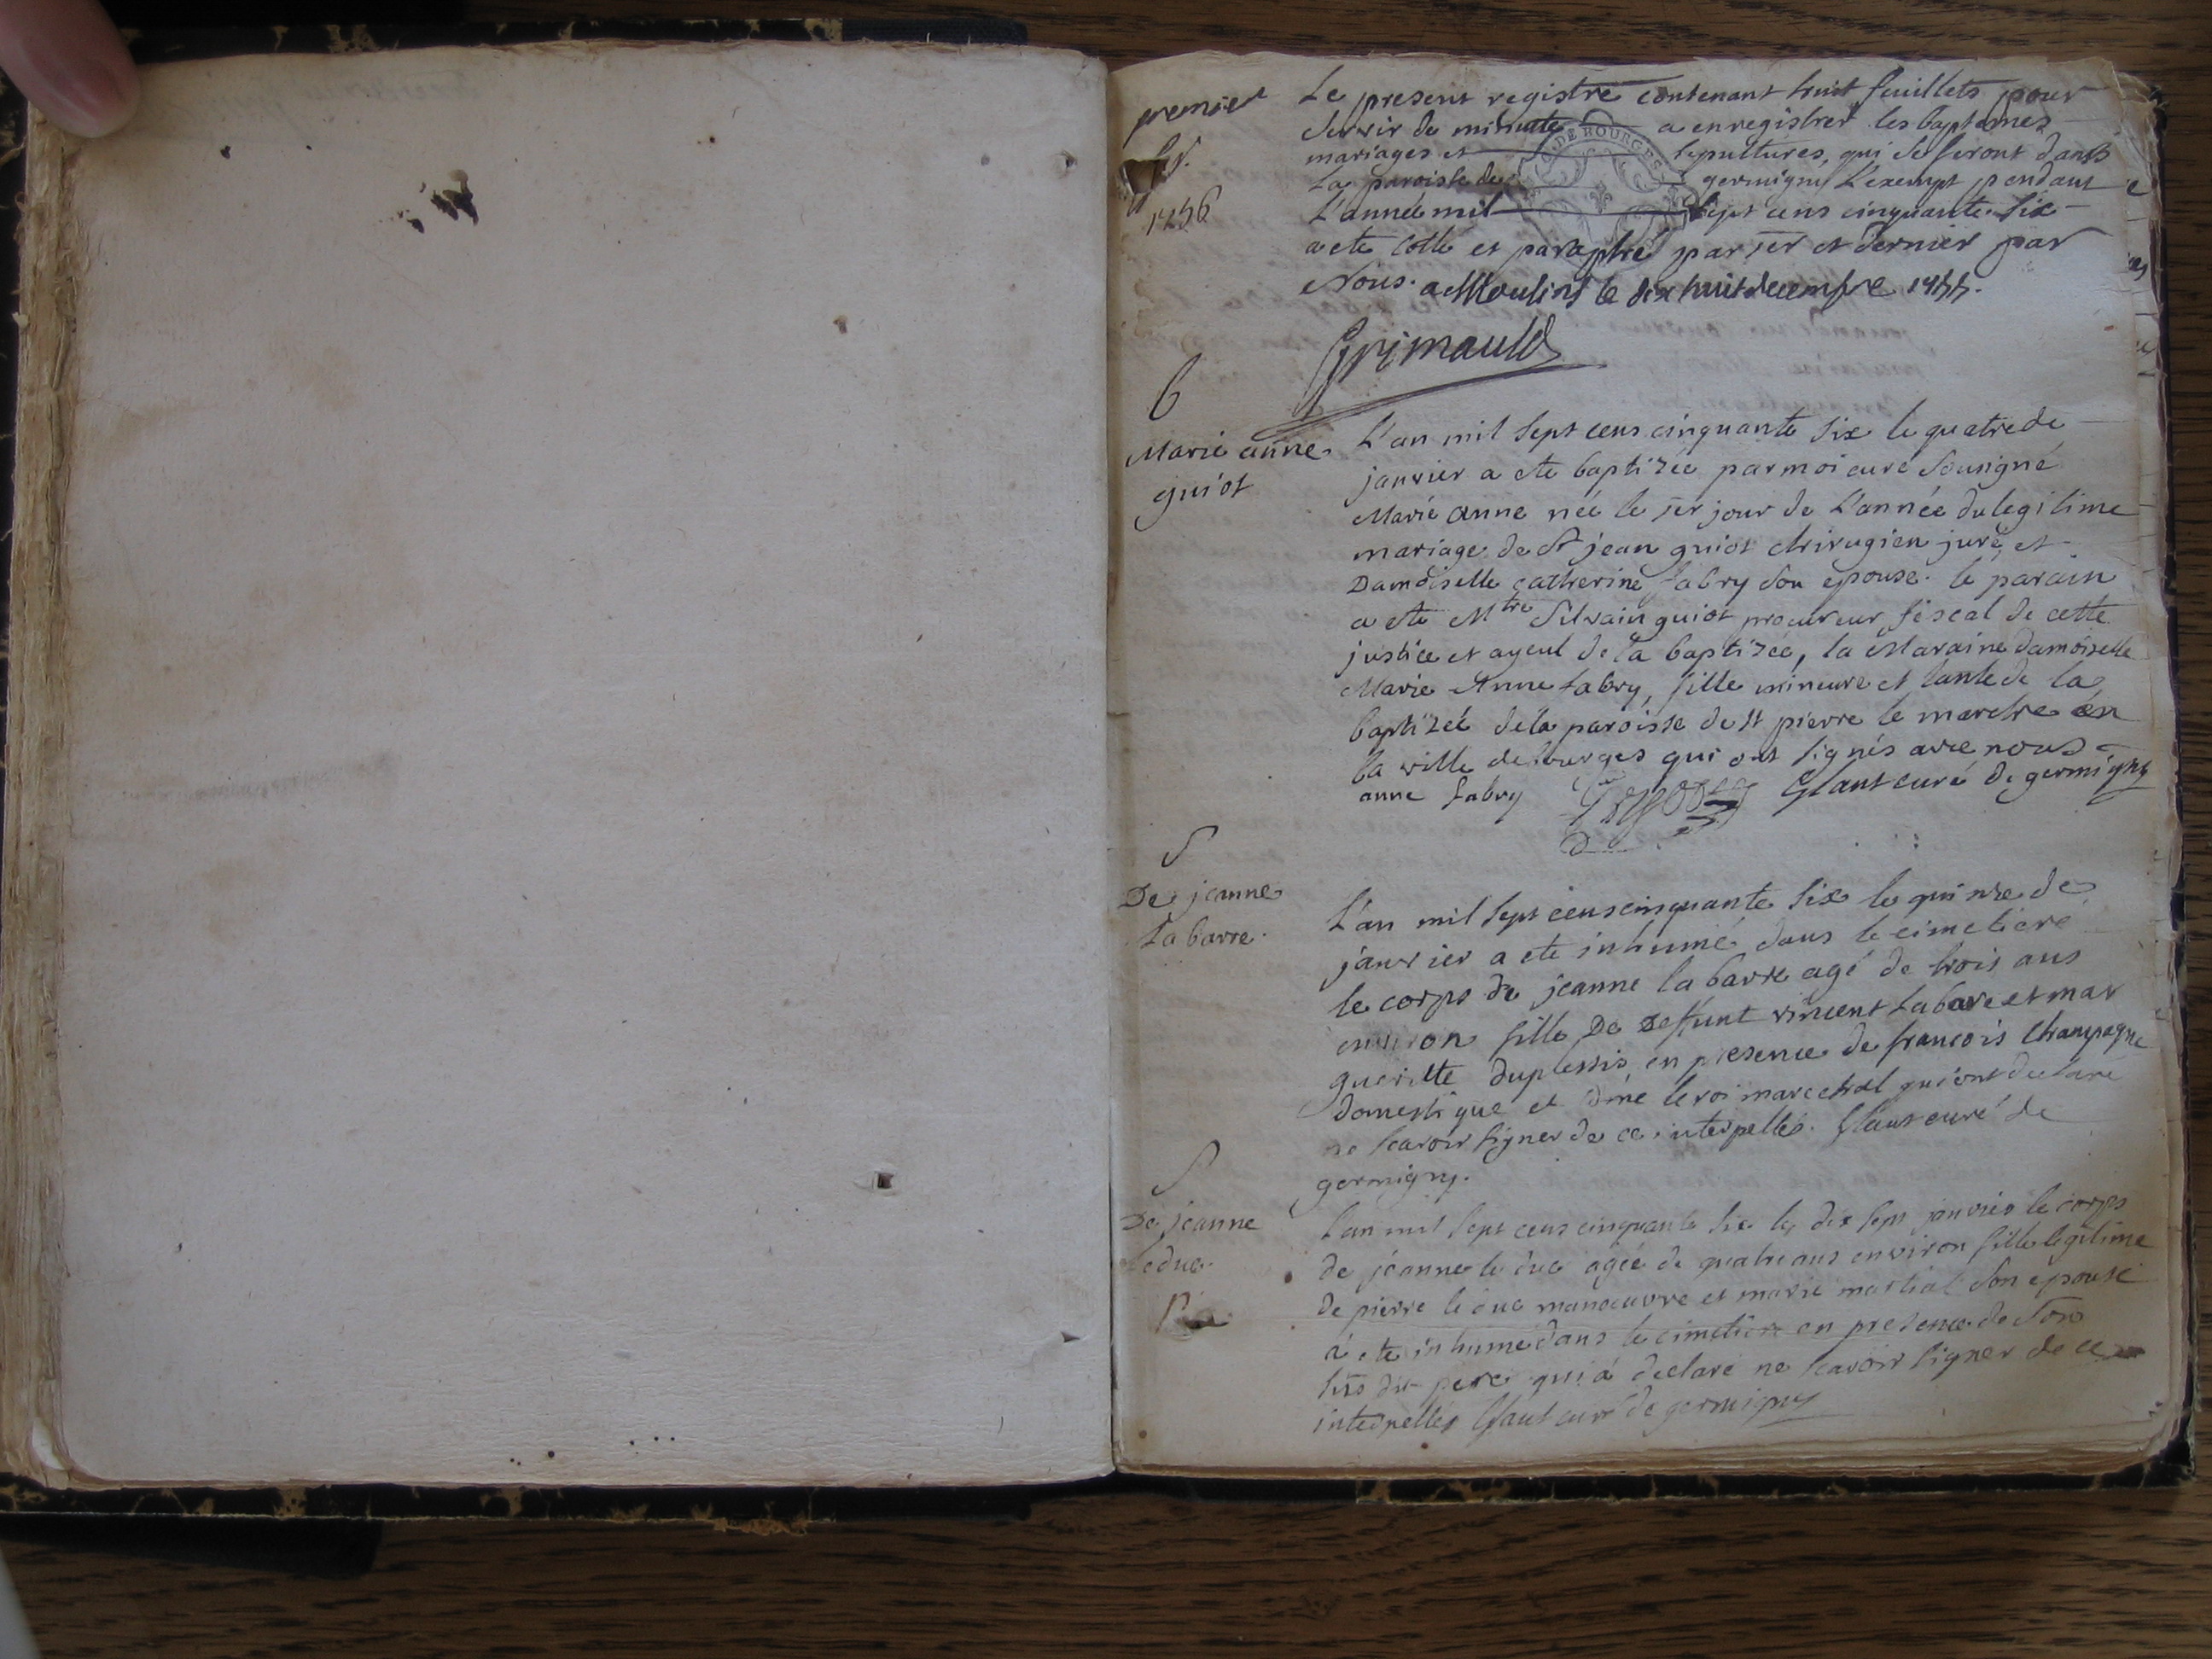 premier
1756
Le present registre contenant huit feuillets pour
servir de minutte a enregistrer les baptemes
mariages et sepultures, qui se feront dans
La paroisse de germigny L'exempt pendant
L'année mil sept cens cinquante six
a ete cotté et paraphé par 1er et dernier par
Nous. a Moulins le dix huit decembre 1755.
Grimauld
DE BOURGES
b
Marie anne
guiot
L'an mil sept cens cinquante six le quatre de
janvier a ete baptizée par moi curé sousigné
Marie anne née le 1er jour de L'année du legitime
mariage de Sr jean guiot chirugien juré et
Damoiselle catherine fabry son epouse. le parain
a ete Mtre Silvain guiot procureur fiscal de cette
justice et ayeul de la baptizée, la Maraine damoiselle
Marie Anne fabry, fille mineure et tante de la
baptizée de la paroisse de st pierre le marche en
la ville de bourges qui ont signés avec nous
anne fabry curé de germigny
S
De jeanne
La barre.
L'an mil sept cens cinquante six le quinze de
janvier a ete inhumé dans le cimetiere
le corps de jeanne la barre agé de trois ans
environ fille De Deffunt vincent Labare et mar
gueritte duplessis en presence de francois Champagne
domestique et leroi marechal qui ont declaré
ne scavoir signer de ce interpellés. curé de
germigny.
S
De jeanne
Leduc.
L'an mil sept cens cinquante six le dix sept janvier le corps
de jeanne le duc agée de quatre ans environ fille legitime
de pierre le duc manoeuvre et marie martial son epouse
à ete inhumé dans le cimetiere en presence de son
sus dit pere qui a declaré ne scavoir signer de ce
interpellés curé de germigny